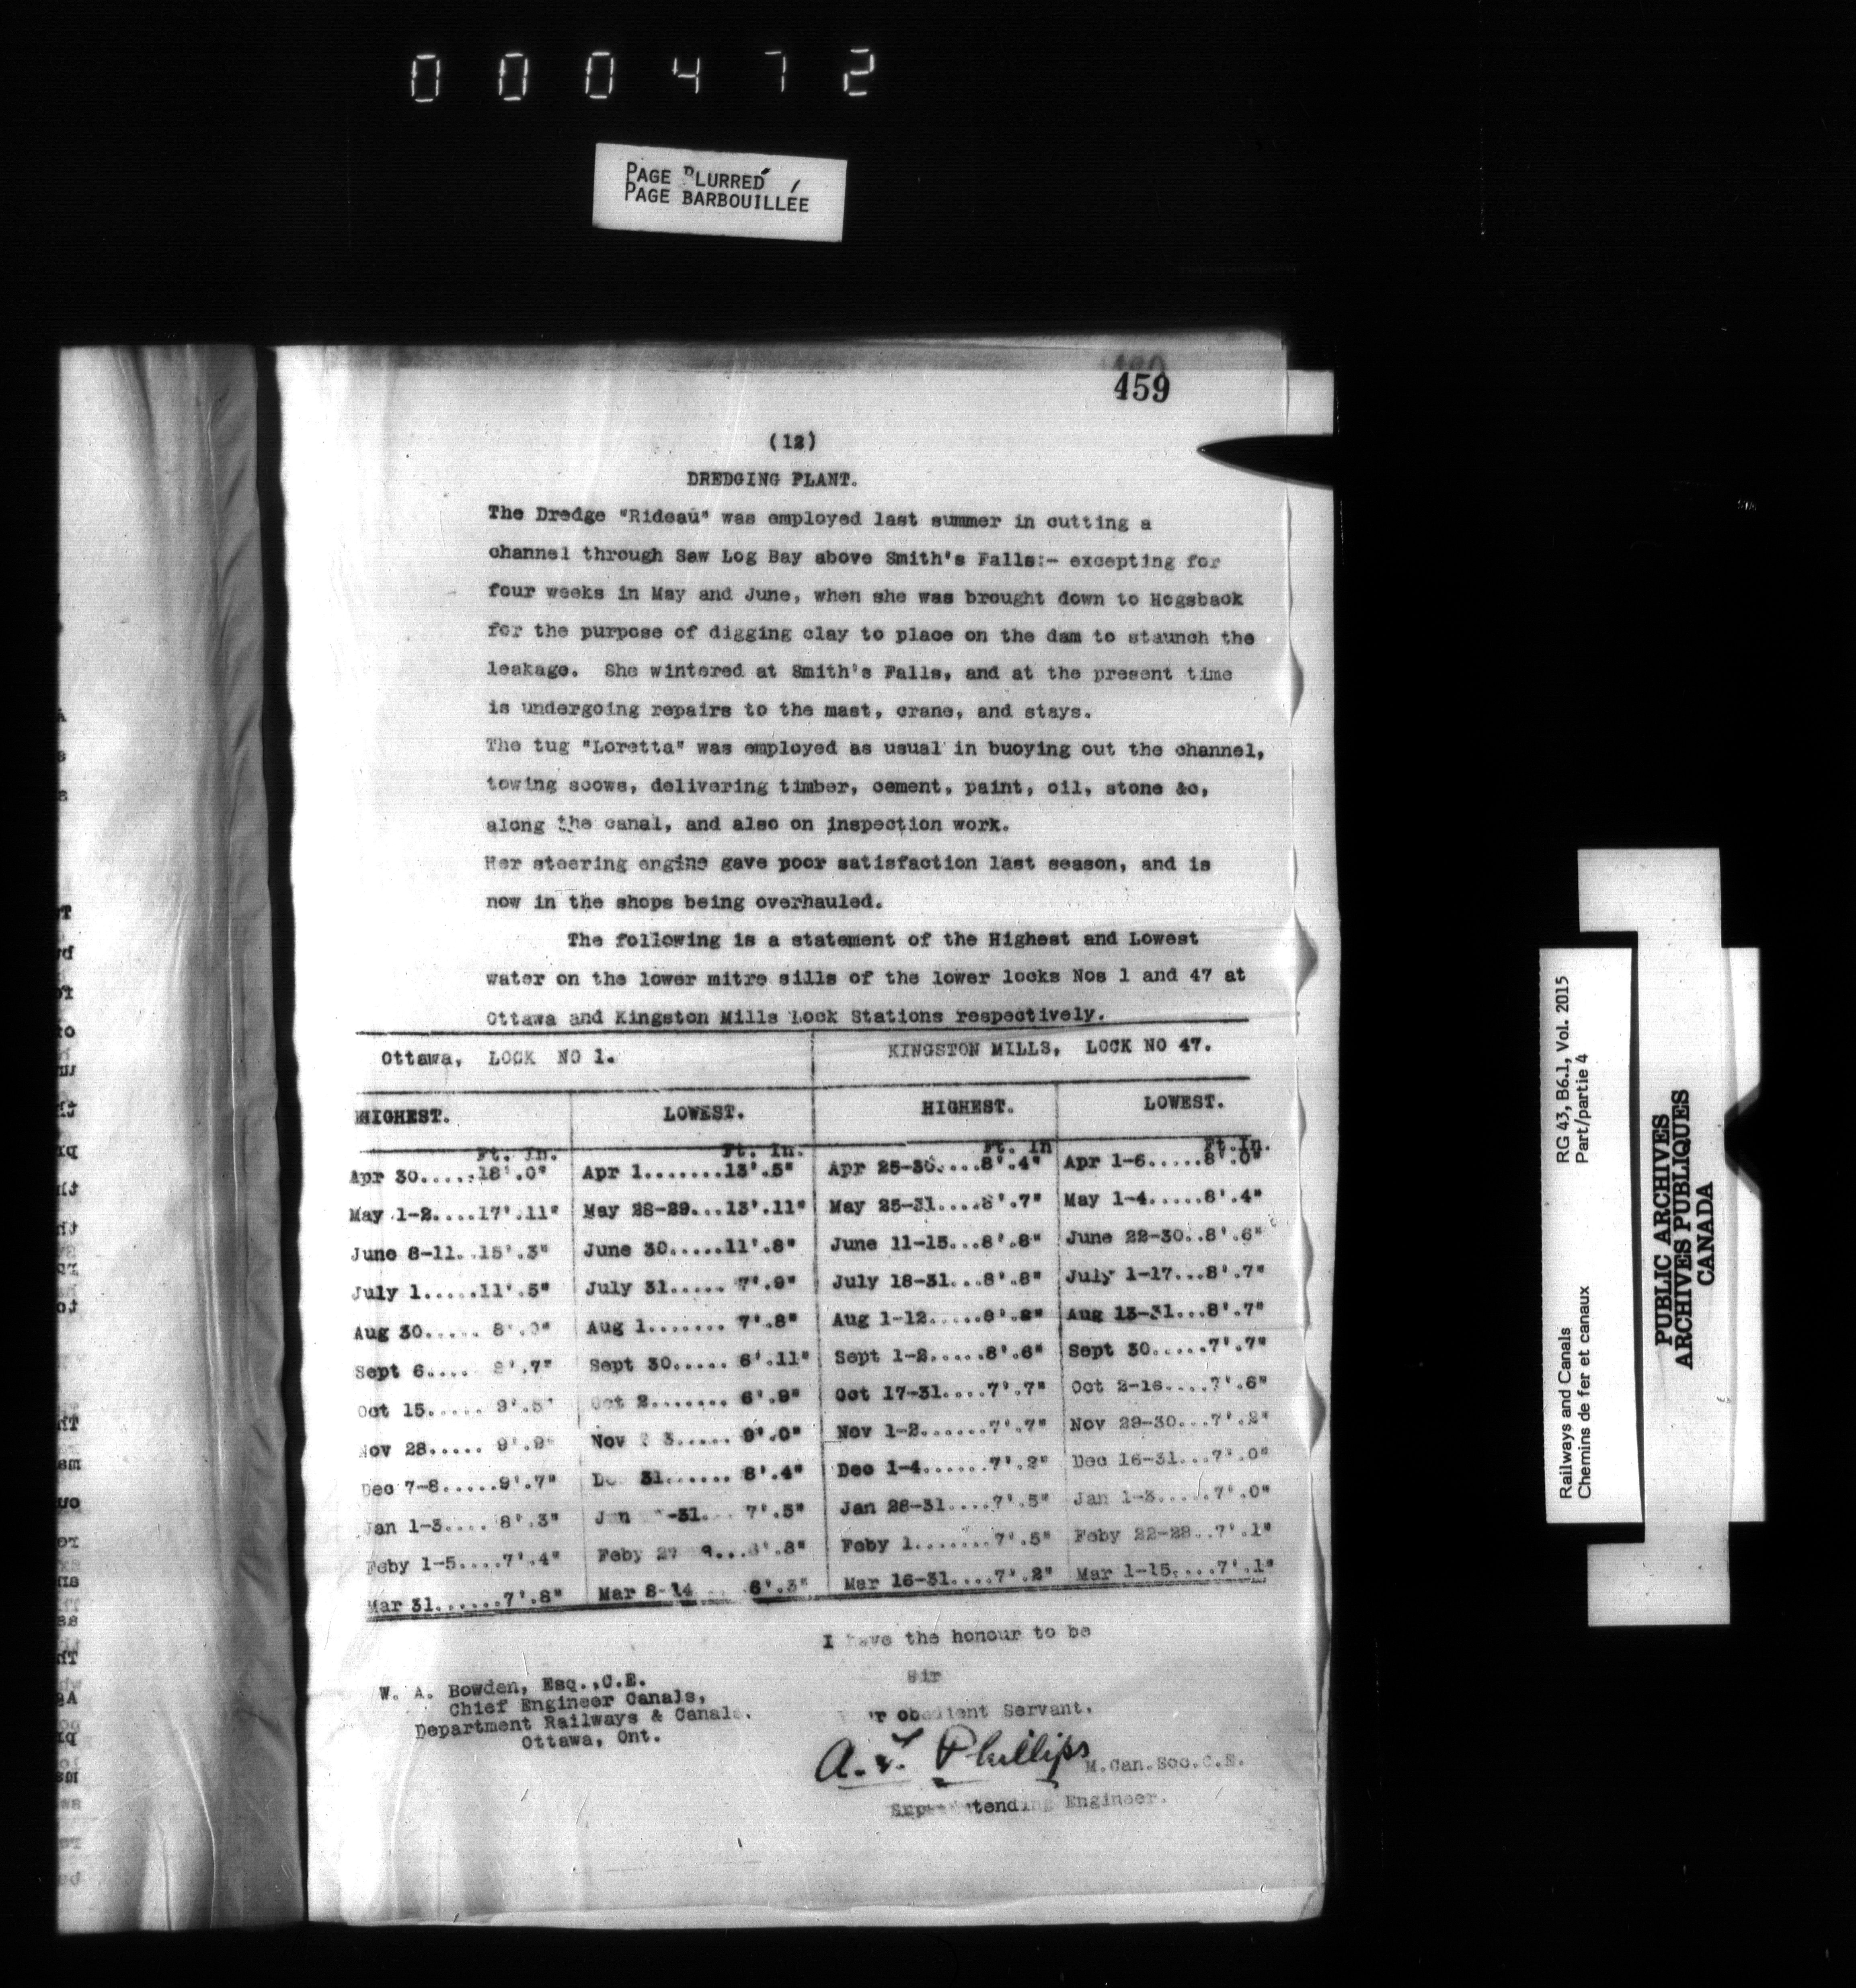 000472
PAGE BLURRED
PAGE BARBOUILLÉE
459
(12)
DREDGING PLANT.
The Dredge "Rideau" was employed last summer in cutting a
channel through Saw Log Bay above Smith's Falls:- excepting for
four weeks in May and June, when she was brought down to Hogsback
for the purpose of digging clay to place on the dam to staunch the
leakage. She wintered at Smith's Falls, and at the present time
is undergoing repairs to the mast, crane, and stays.
The tug "Loretta" was employed as usual in buoying out the channel,
towing scows, delivering timber, cement, paint, oil, stone &c,
along the canal, and also on inspection work.
Her steering engine gave poor satisfaction last season, and is
now in the shops being overhauled.
The following is a statement of the Highest and Lowest
water on the lower mitre sills of the lower locks Nos 1 and 47 at
Ottawa and Kingston Mills Lock Stations respectively.
Ottawa, LOCK NO 1. KINGSTON MILLS, LOCK NO 47.
HIGHEST. LOWEST. HIGHEST. LOWEST.
Ft. In. Ft. In. Ft. In Ft.In.
Apr 30.....18'.0" Apr 1.......13'.5" Apr 25-30....8'.4" Apr 1-6.....8'.0"
May 1-2....17'.11" May 28-29...13'.11" May 25-31....8'.7" May 1-4.....8'.4"
June 8-11..15'.3" June 30.....11'.8" June 11-15...8'.8" June 22-30..8'.6"
July 1.....11'.5" July 31..... 7'.9" July 18-31...8'.8" July 1-17...8'.7"
Aug 30..... 8'.0" Aug 1....... 7'.8" Aug 1-12.....8'.8" Aug 13-31...8'.7"
Sept 6.... .7" Sept 30..... 6'.11" Sept 1-2.....8'.6" Sept 30.....7'.7"
Oct 15..... 9'.5" Oct 2....... 6'.9" Oct 17-31....7'.7" Oct 2-16....7'.6"
Nov 28..... 9'.9" Nov 3..... 9'.0" Nov 1-2.......7'.7" Nov 29-30...7'.2"
Dec 7-8.....9'.7" Dec 31....... 8'.4" Dec 1-4.......7'.2" Dec 16-31...7'.0"
Jan 1-3.... 8'.3" Jan -31... 7'.5" Jan 28-31....7'.5" Jan 1-3.....7'.0"
Feby 1-5....7'.4" Feby 27 ... .8" Feby 1........7'.5" Feby 22-28..7'.1"
Mar 31......7'.8" Mar 8-14.... 6'.3" Mar 16-31....7'.2" Mar 1-15....7'.1"
I have the honour to be
Sir
Your obedient Servant.
W. A. Bowden, Esq.,C.E.
Chief Engineer Canals,
Department Railways & Canals.
Ottawa, Ont.
A. T. Phillips M.Can.Soc.C.E.
Superintending Engineer.
Railways and Canals RG 43, B6.1, Vol. 2015
Chemins de fer et canaux Part/partie 4
PUBLIC ARCHIVES
ARCHIVES PUBLIQUES
CANADA